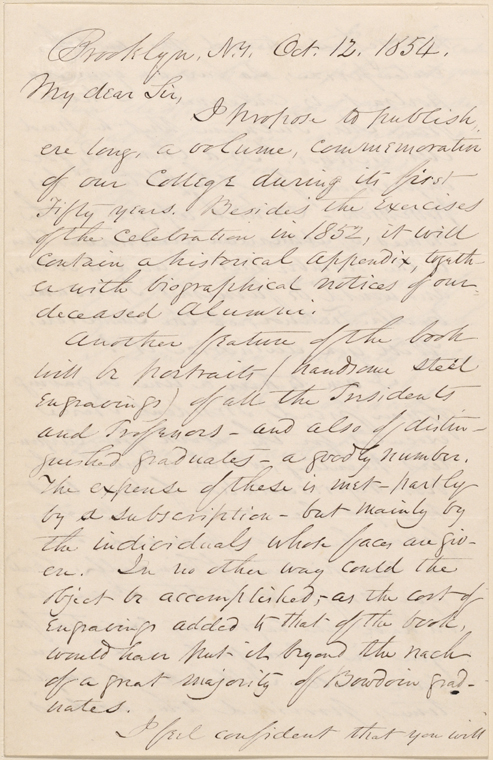 Brooklyn, N.Y. Oct. 12. 1854.
My dear Sir,
I propose to publish,
ere long, a volume, commemorative
of our College during its first
Fifty years. Besides the Exercises
of the Celebration in 1852, it will
contain a historical appendix, togeth-
er with biographical notices of our
deceased Alumni.
Another feature of the book
will be portraits (handsome steel
Engravings) of all the Presidents
and Professors - and also of distin-
guished graduates - a goodly number.
The expense of these is met - partly
by subscription - but mainly by
the individuals whose faces are giv-
en. In no other way could the
object be accomplished; as the cost of
Engravings added to that of the book,
would have put it beyond the reach
of a great majority of Bowdoin grad-
uates.
I feel confident that you will